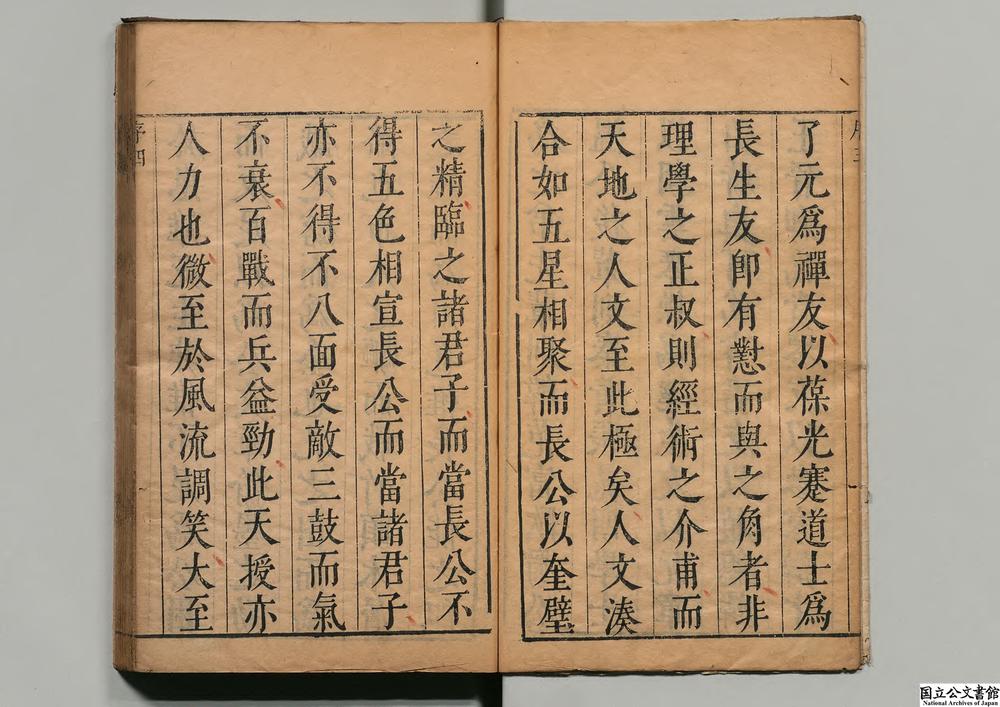 了元爲禪友以葆光蹇道士爲
長生友卽有懟而與之角者非
理學之正叔則經術之介甫而
天地之人文至此極矣人文湊
合如五星相聚而長公以奎壁
之精臨之諸君子而當長公不
得五色相宣長公而當諸君子
亦不得不八面受敵三鼓而氣
不衰百戰而兵益勁此天授亦
人力也微至於風流調笑大至
序四
国立公文書館
National Archives of Japan